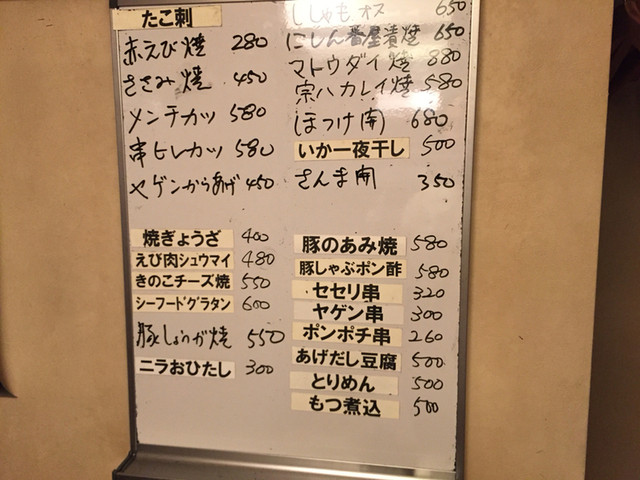 たこ刺
赤えび焼 280
ささみ焼 450
メンチカツ 580
串ヒレカツ 580
ヤゲンからあげ 450
焼ぎょうざ 400
えび肉シュウマイ 480
きのこチーズ焼 550
シーフードグラタン 600
豚しょうが焼 550
ニラおひたし 300
ししゃもオス 650
にしん番屋漬焼 650
マトウダイ焼 880
宗ハカレイ焼 580
ほっけ開 680
いか一夜干し 500
さんま開 350
豚のあみ焼 580
豚しゃぶポン酢 580
セセリ串 320
ヤゲン串 300
ポンポチ串 260
あげだし豆腐 500
とりめん 500
もつ煮込 500